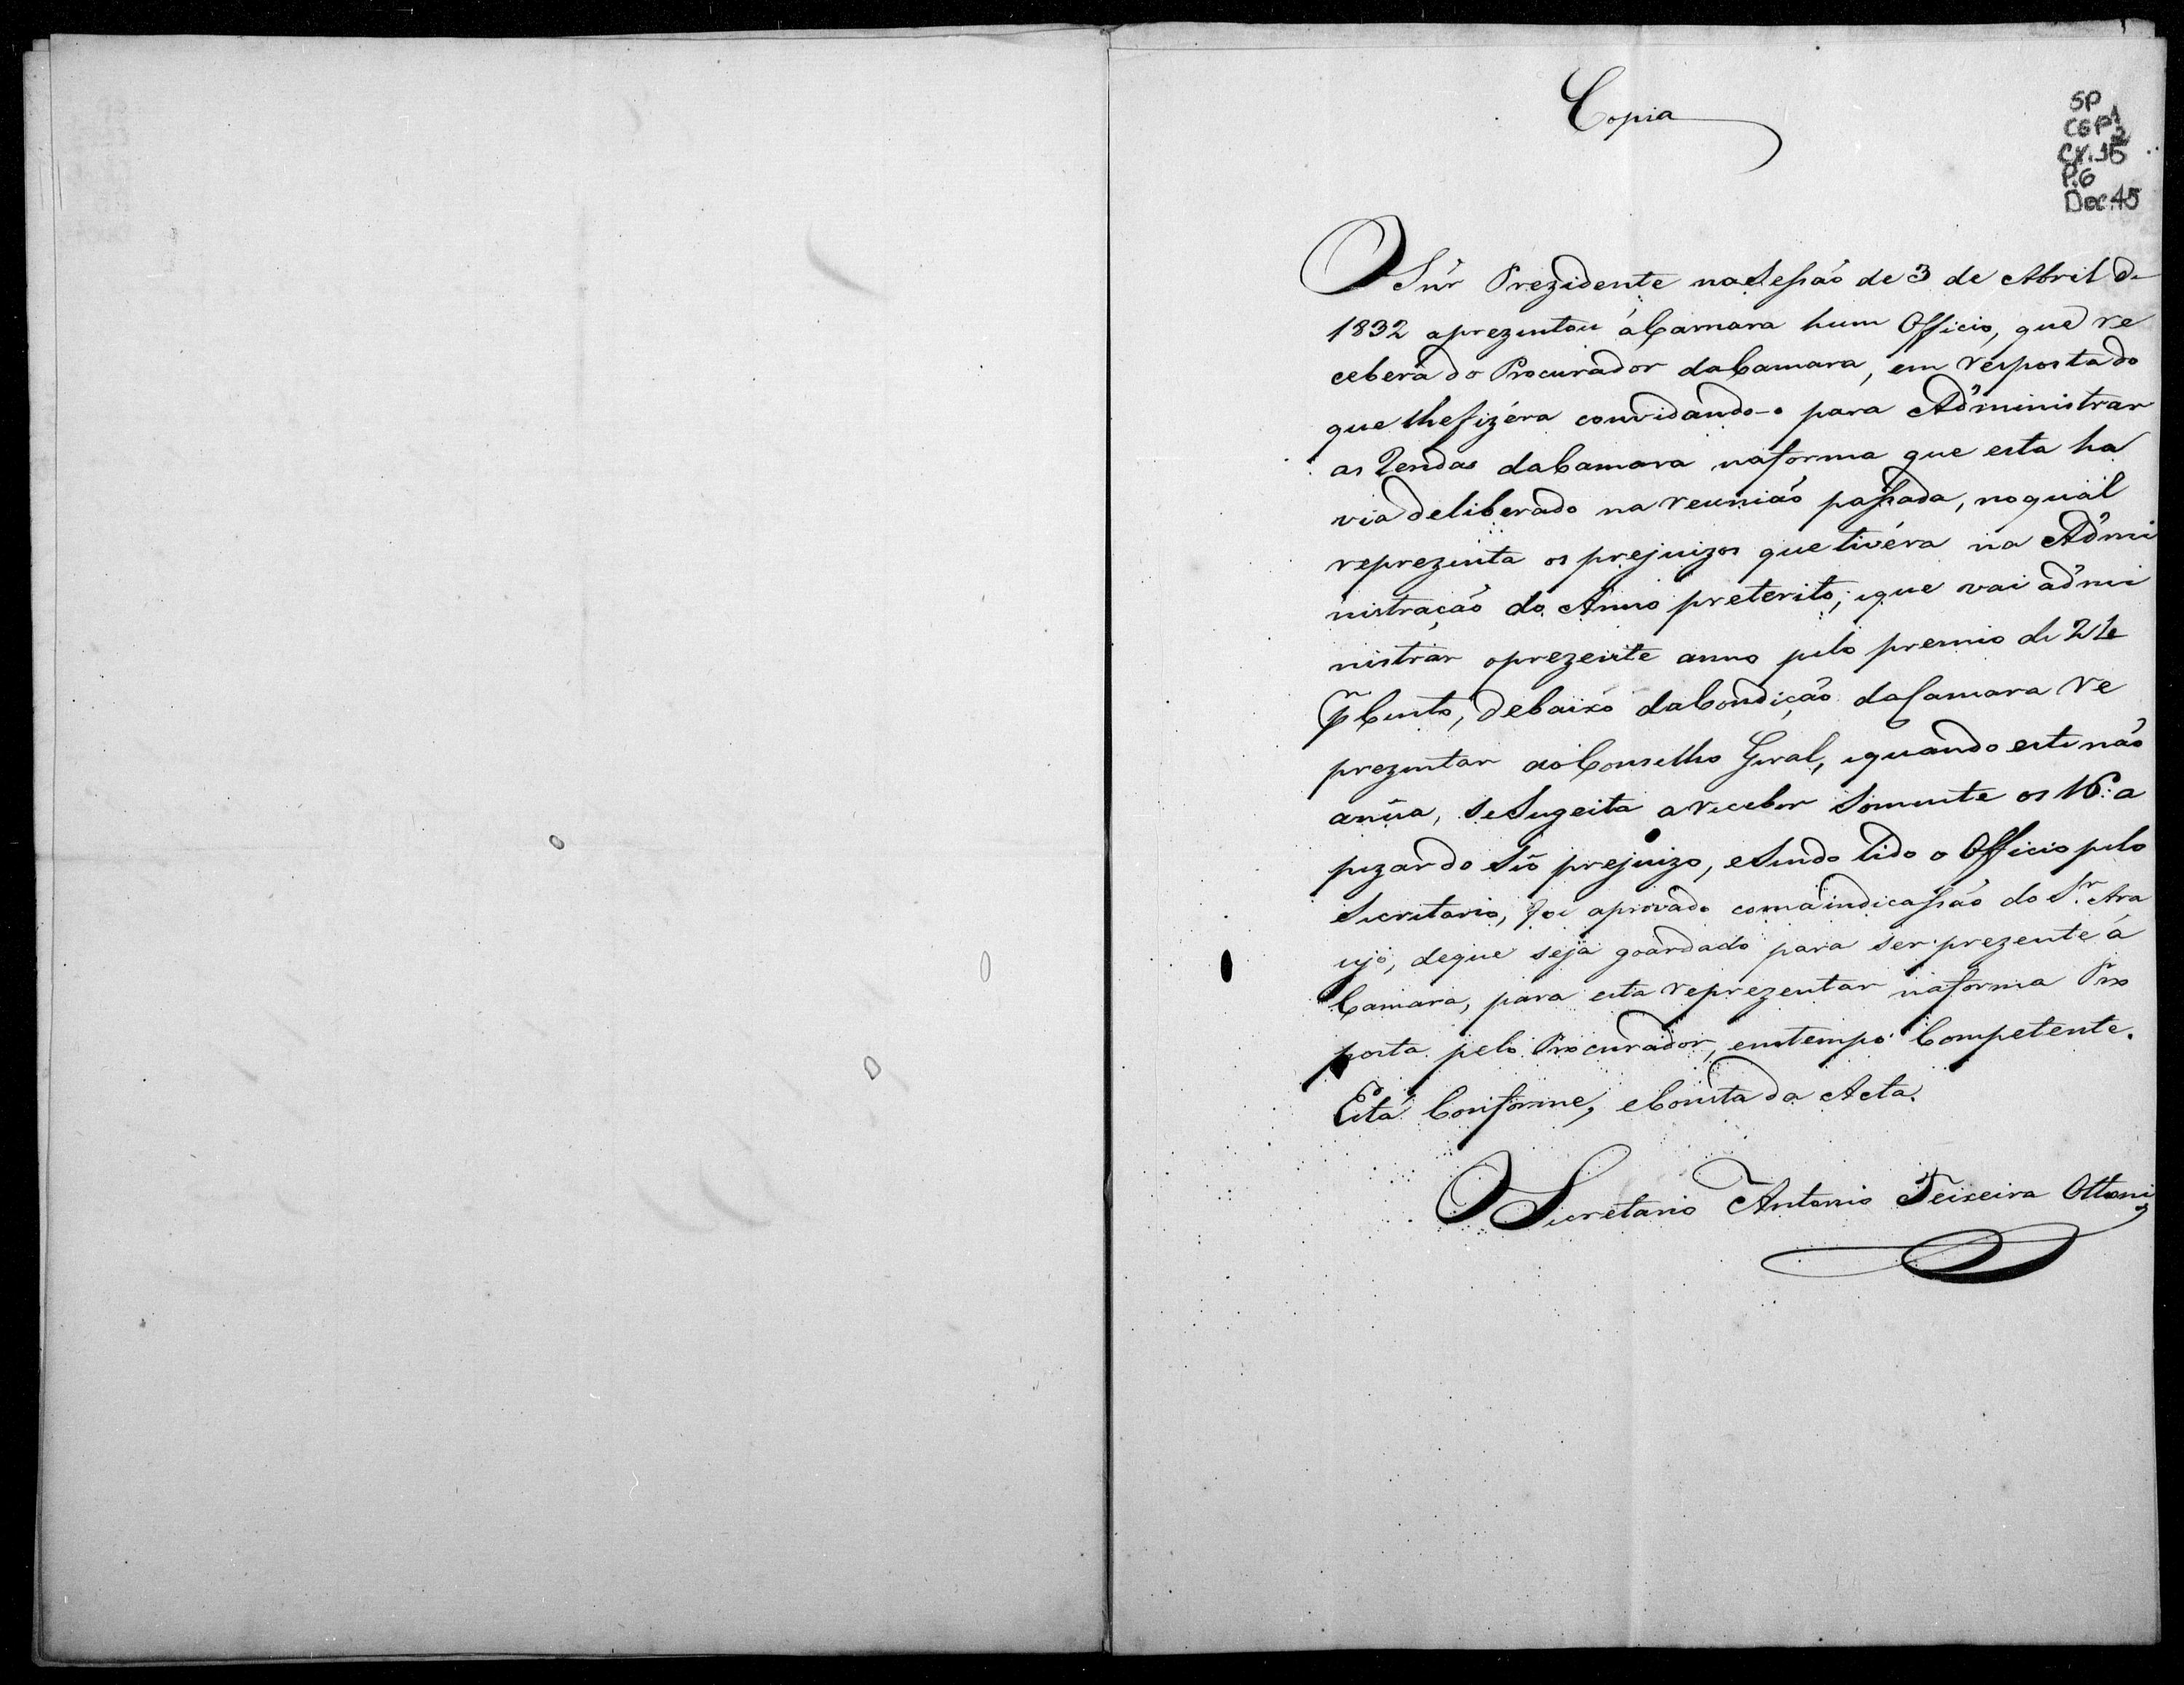 Copia
SP
CGP1
Cx. 15 2
P.6
Doc.45
O Snr Prezidente na Sessão de 3 de Abril de
1832 aprezentou á Camara hum Officio, que re
cebera do Procurador da Camara, em resposta do
que lhe fizéra convidando-o para Administrar
as Rendas da Camara na forma que esta ha
via deliberado na reunião passada, no qual
reprezenta os prejuizos que tivéra na Admi
nistração do Anno preterito, e que vai admi
nistrar o prezente anno pelo premio de
pr Cento, debaixo da Condição da Camara re
prezentar ao Conselho Geral, e quando este não
anúa, se Sugeita a receber Somente os 16: a
pezar do Seo prejuizo, e Sendo lido o Officio pelo
Secretario, foi aprovado com a indicassão do Sr. Ara
ujo, de que seja goardado para ser prezente á
Camara, para esta reprezentar na forma Pro
posta pelo Procurador, em tempo Competente.
Está Conforme, e Consta da Acta.
O Secretario Antonio Teixeira Ottoni